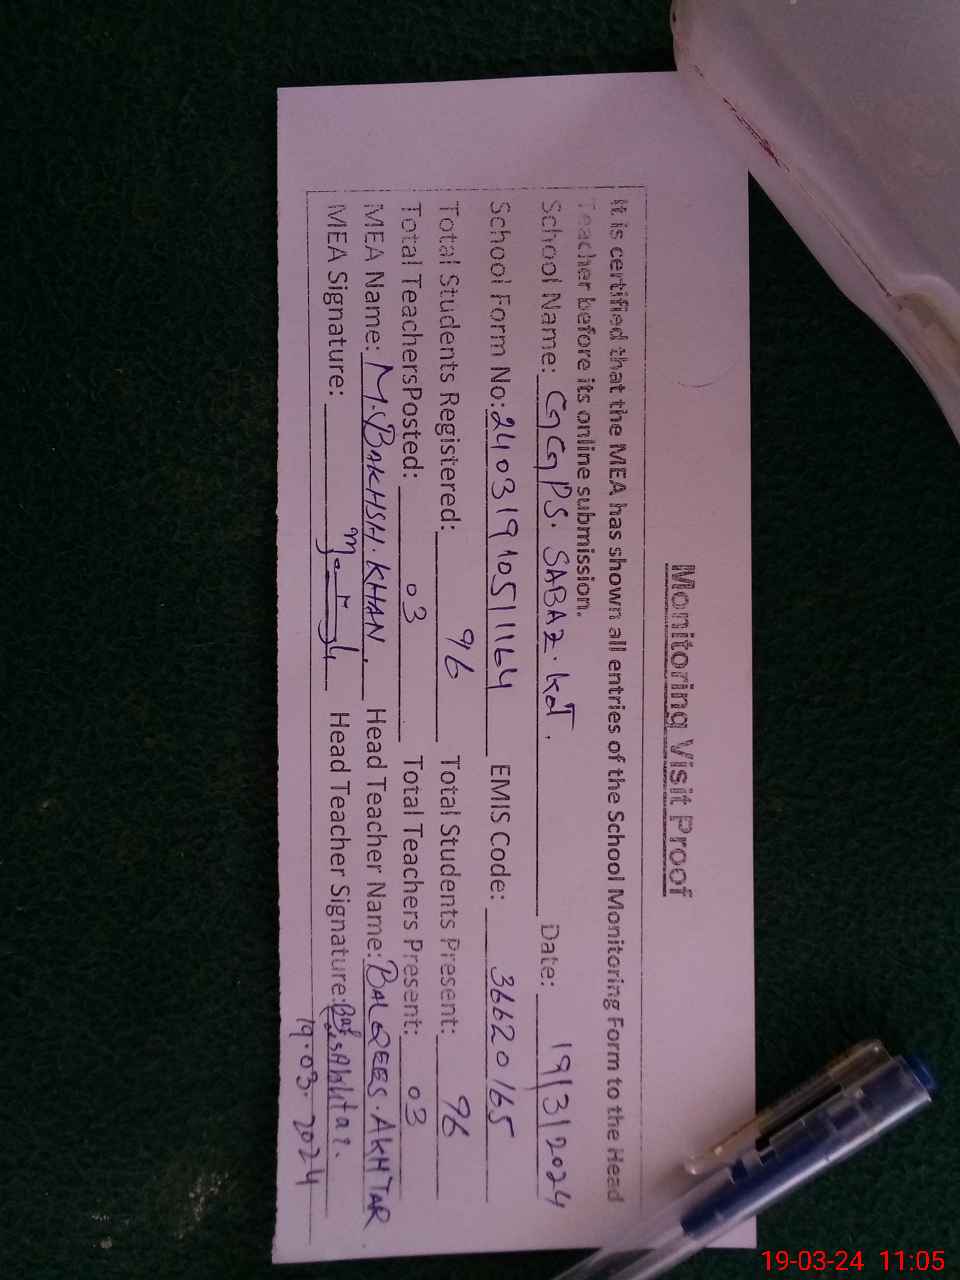 Monitoring Visit Proof
It is certified that the MEA has shown all entries of the School Monitoring Form to the Head
Teacher before its online submission.
School Name: GGPS. SABAZ. kot. Date: 19/3/2024
School Form No: 24031910511164 EMIS Code: 36620165
Total Students Registered: 96 Total Students Present: 96
Total TeachersPosted: 03 Total Teachers Present: 03
MEA Name: M. BAKHSH. KHAN. Head Teacher Name: BALQEES. AKHTAR.
MEA Signature: Head Teacher Signature:
19.03.2024
19-03-24 11:05